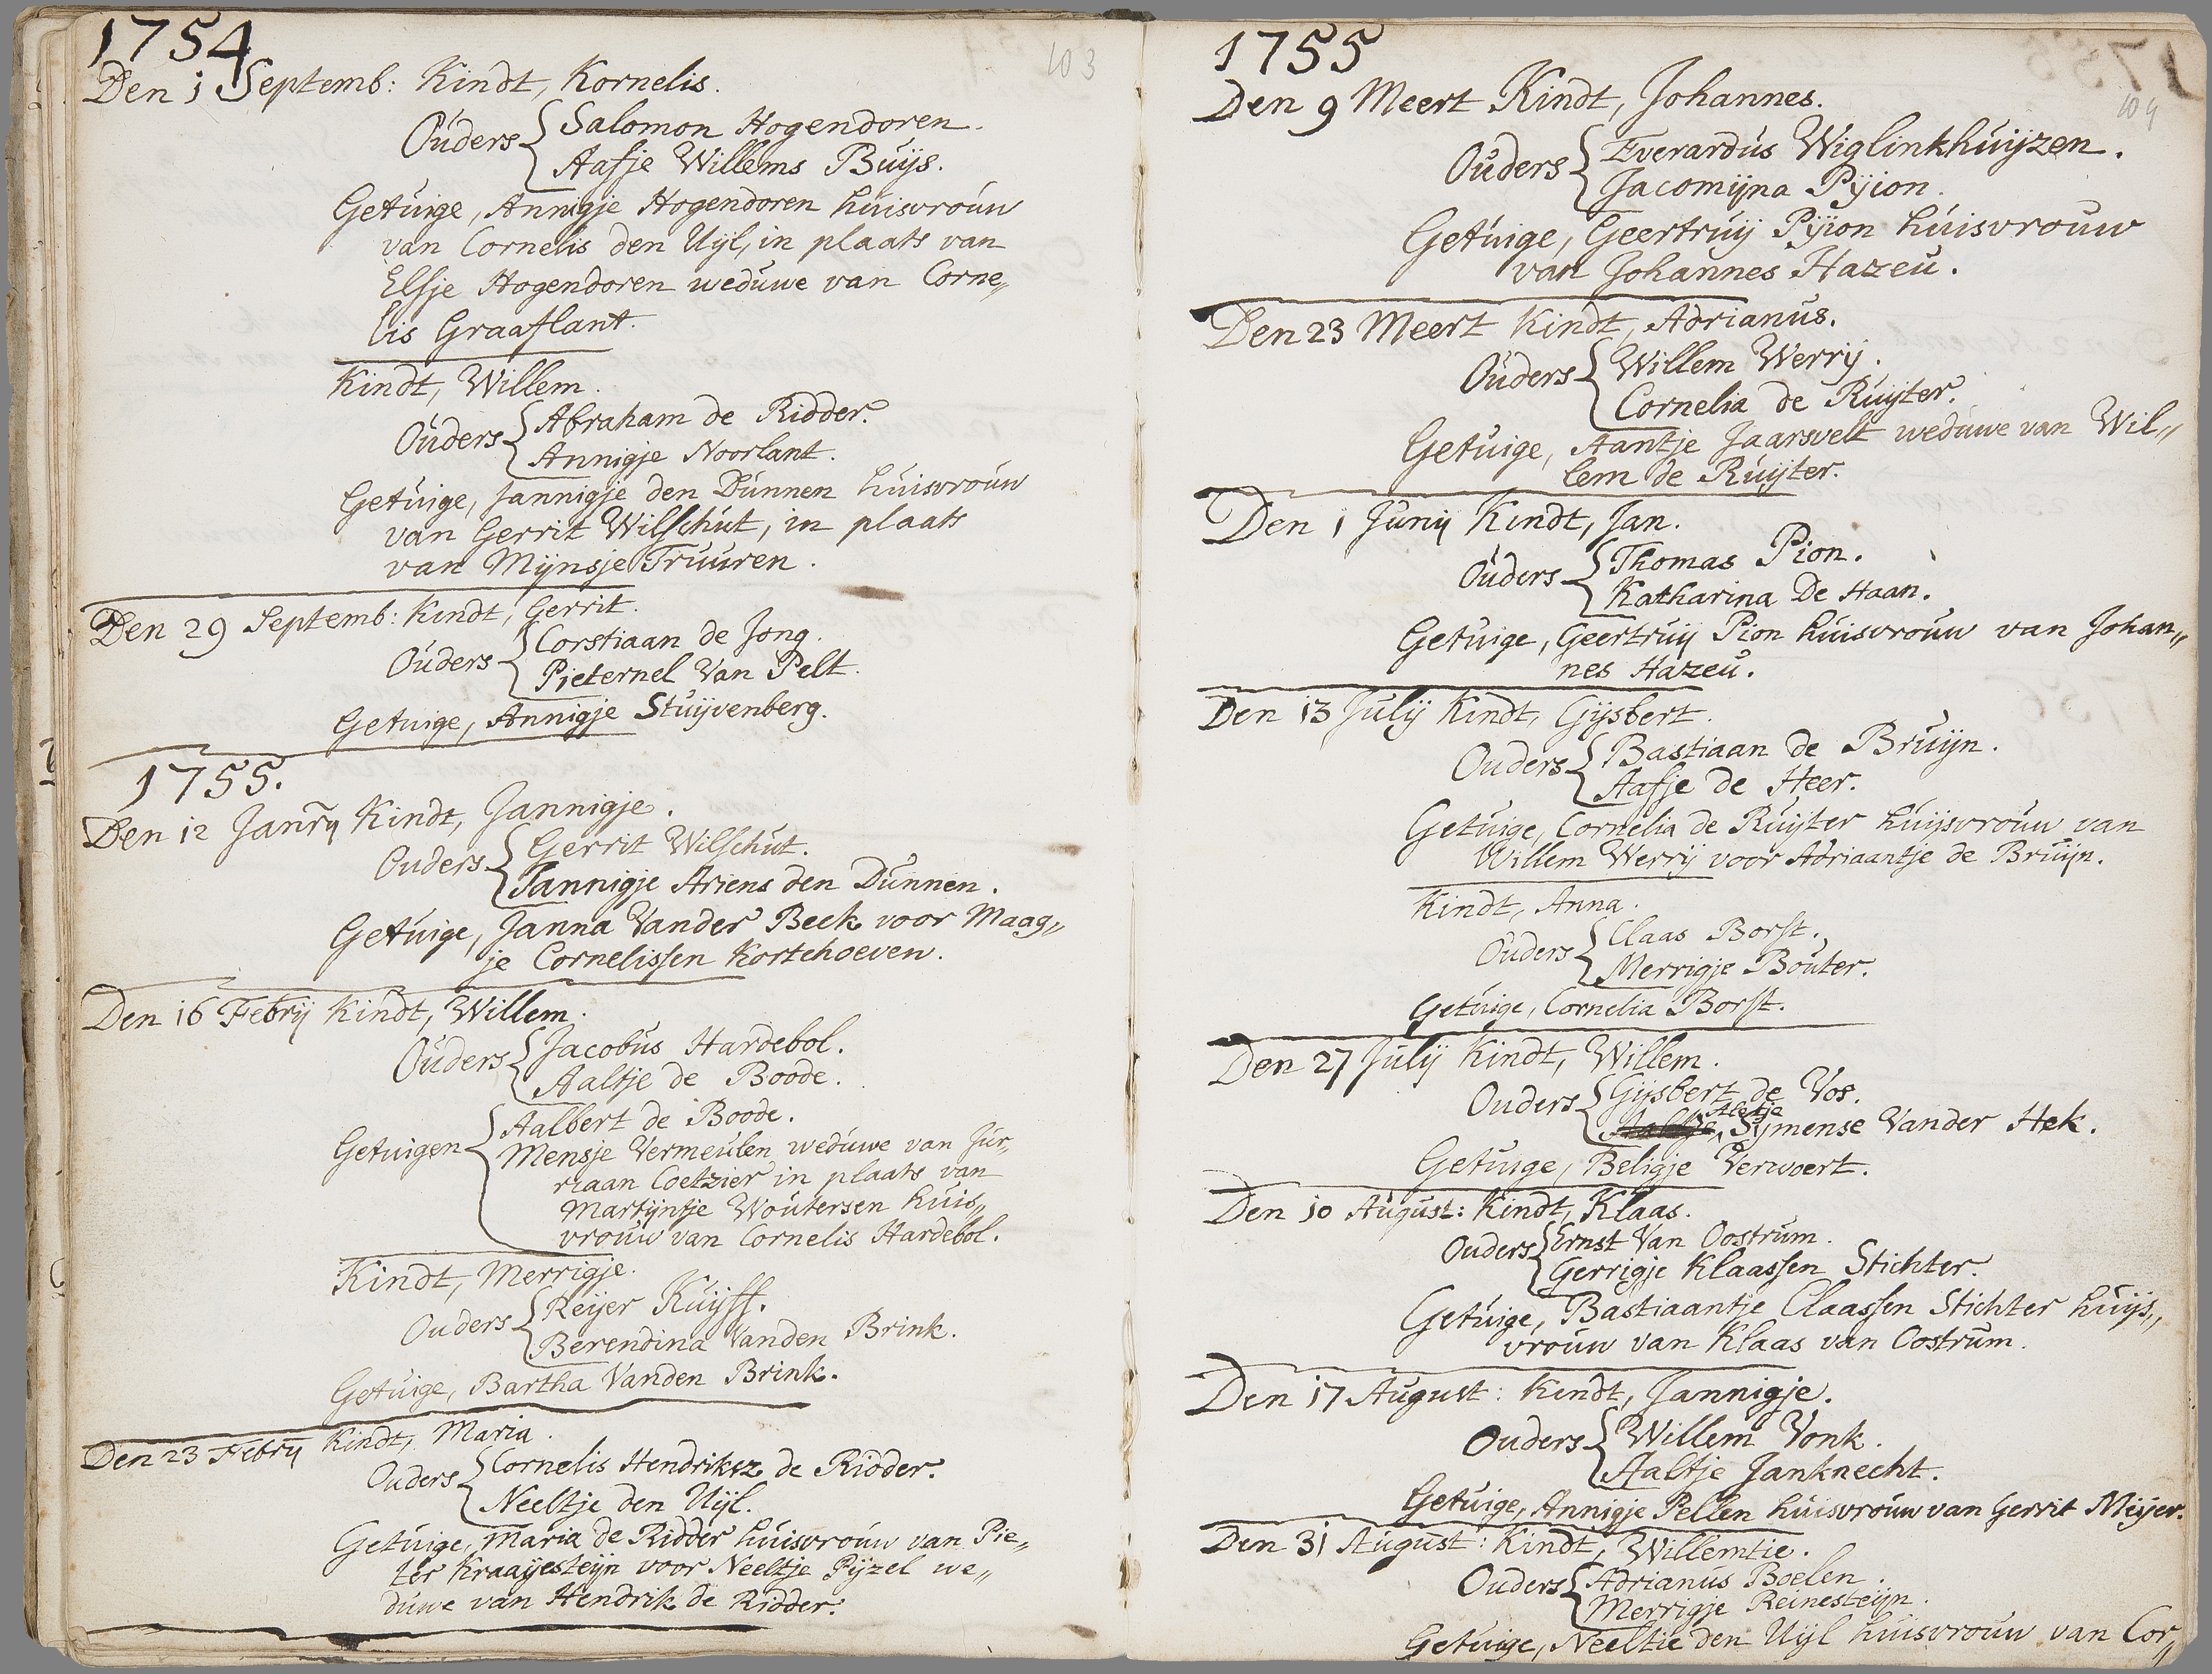 1754
103
Den 1 Septemb: Kindt, Kornelis.
Ouders Salomon Hogendoren.
Aafje Willems Buijs.
Getuige, Annigje Hogendoren huisvrouw
van Cornelis den Uijl, in plaats van
Elsje Hogendoren weduwe van Corne„
lis Graaflant.
Kindt, Willem.
Ouders Abraham de Ridder.
Annigje Noorlant.
Getuige, Jannigje den Dunnen huisvrouw
van Gerrit Wilschut, in plaats
van Mijnsje Truuren.
Den 29 Septemb: Kindt, Gerrit.
Ouders Corstiaan de Jong.
Pieternel Van Pelt.
Getuige, Annigje Stuijvenberg.
1755.
Den 12 Janry Kindt, Jannigje.
Ouders Gerrit Wilschut.
Jannigje Ariens den Dunnen.
Getuige, Janna Vander Beek voor Maag„
je Cornelissen Kortehoeven.
Den 16 Febrij Kindt, Willem.
Ouders Jacobus Hardebol.
Aaltje de Boode.
Getuigen Aalbert de Boode.
Mensje Vermeulen weduwe van Jur„
riaan Coetzier in plaats van
Martijntje Woutersen huis„
vrouw van Cornelis Hardebol.
Kindt, Merrigje.
Ouders Reijer Kuijff.
Berendina Vanden Brink.
Getuige, Bartha Vanden Brink.
Den 23 Febrij Kindt, Maria.
Ouders Cornelis Hendriksz de Ridder.
Neeltje den Uijl.
Getuige, Maria de Ridder huisvrouw van Pie„
ter Kraayesteijn voor Neeltje Pijzel we„
duwe van Hendrik de Ridder.
1755
104
Den 9 Meert Kindt, Johannes.
Ouders Everardus Wiglinkhuijzen.
Jacomijna Pijion.
Getuige, Geertruij Pijion huisvrouw
van Johannes Hazeu.
Den 23 Meert Kindt, Adrianus.
Ouders Willem Werrij.
Cornelia de Ruijter.
Getuige, Aantje Jaarsvelt weduwe van Wil„
lem de Ruijter.
Den 1 Junij Kindt, Jan.
Ouders Thomas Pion.
Katharina De Haan.
Getuige, Geertruij Pion huisvrouw van Johan„
nes Hazeu.
Den 13 Julij Kindt, Gijsbert.
Ouders Bastiaan de Bruijn.
Aafje de Heer.
Getuige, Cornelia de Ruijter huijsvrouw van
Willem Werrij voor Adriaantje de Bruijn.
Kindt, Anna.
Ouders Claas Borst.
Merrigje Bouter.
Getuige, Cornelia Borst.
Den 27 Julij Kindt, Willem.
Ouders Gijsbert de Vos.
Aletje
Sijmense Vander Hek.
Getuige, Beligje Verwoert.
Den 10 August: Kindt, Klaas.
Ouders Ernst Van Oostrum.
Gerrigje Klaassen Stichter.
Getuige, Bastiaantje Claassen Stichter huijs„
vrouw van Klaas van Oostrum.
Den 17 August: Kindt, Jannigje.
Ouders Willem Vonk.
Aaltje Janknecht.
Getuige, Annigje Pellen huisvrouw van Gerrit Meijer.
Den 31 August: Kindt, Willemtie.
Ouders Adrianus Boelen.
Merrigje Reinesteijn.
Getuige, Neeltie den Uijl huisvrouw van Cor„